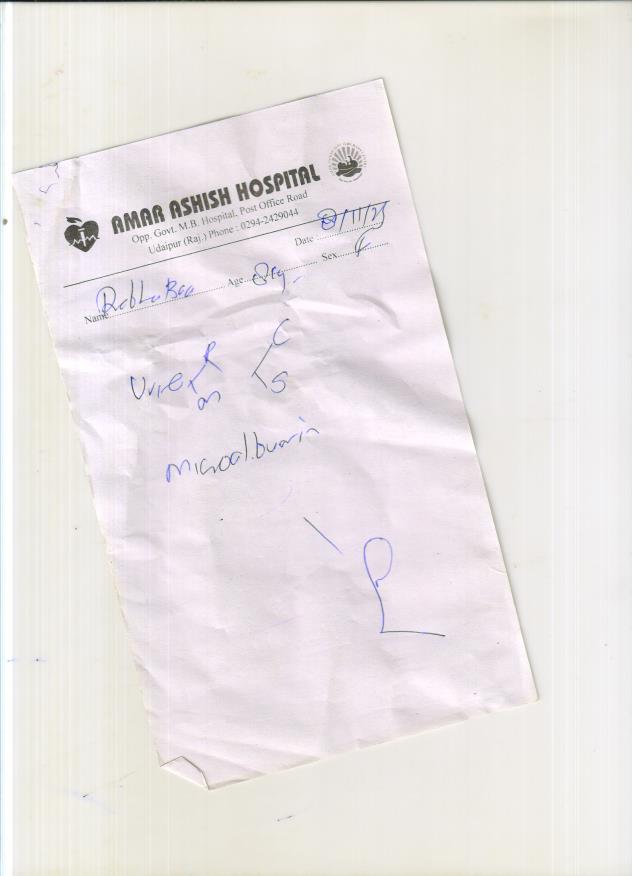 AMAR ASHISH HOSPITAL
Opp. Govt. M.B. Hospital, Post Office Road
Udaipur (Raj.) Phone : 0294-2429044
Date /11/23
Name Age Sex F
Urine R C
m S
Microalbumin